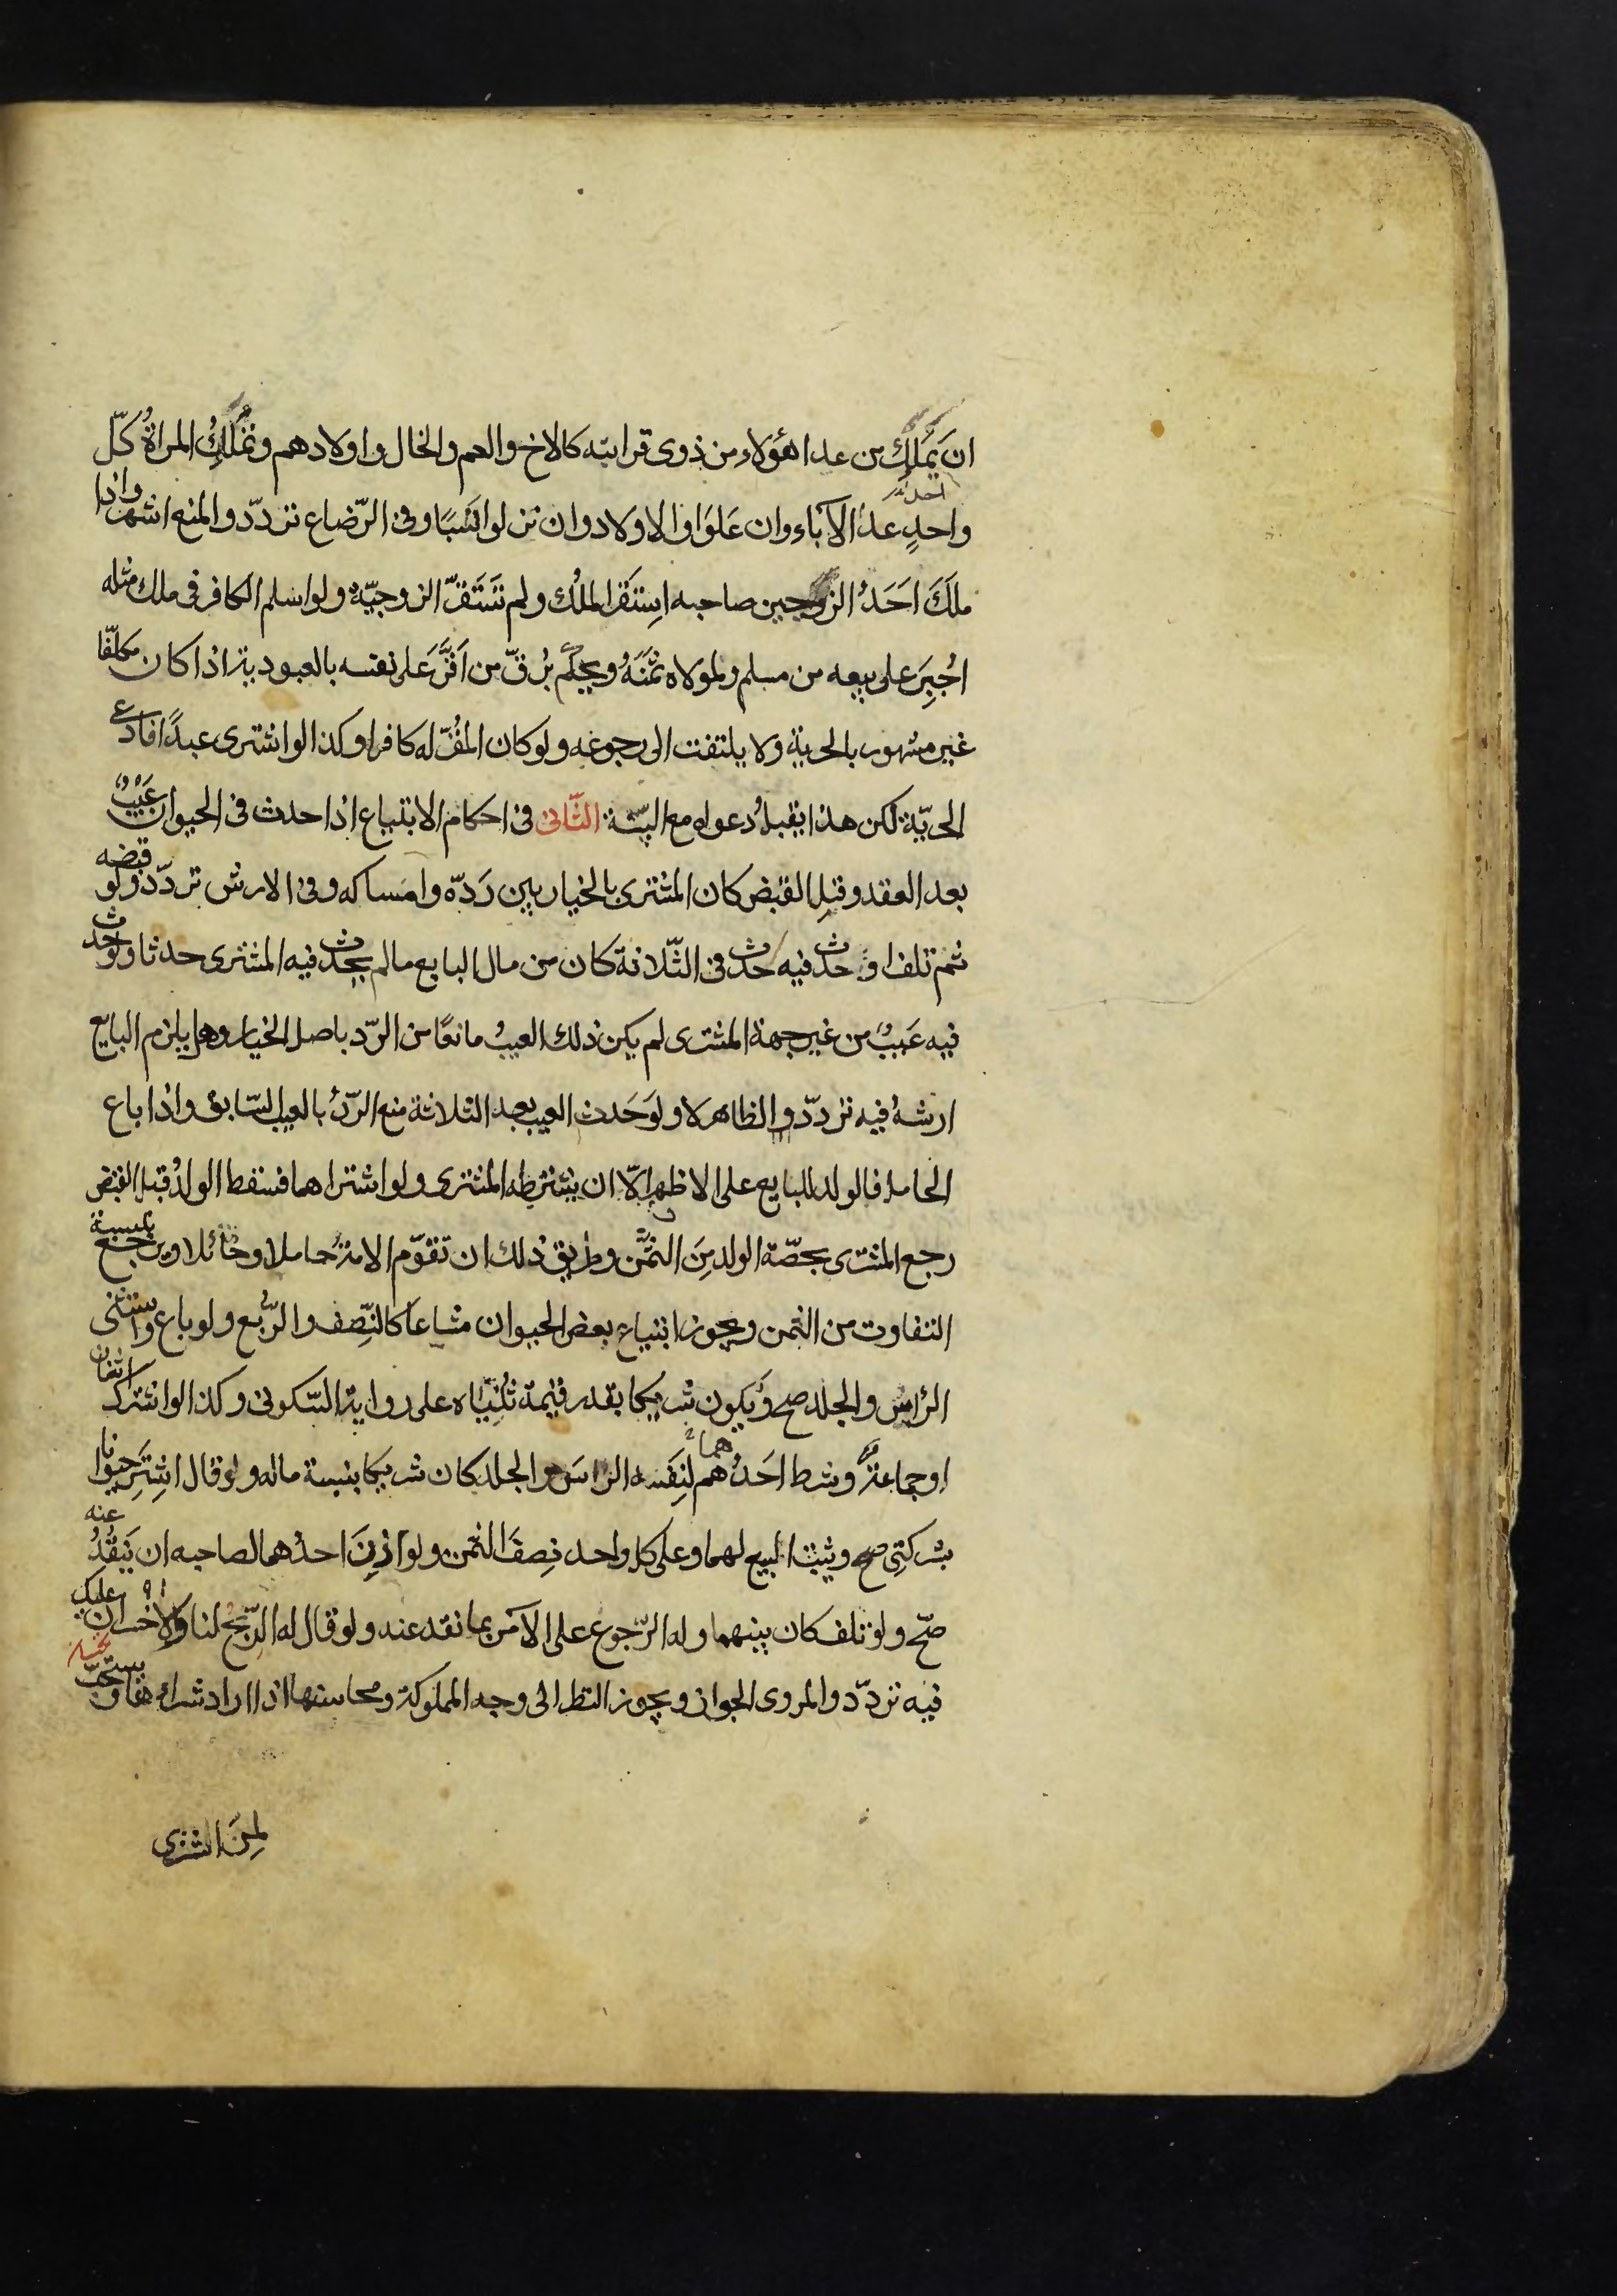 ان يَملك من عدا هؤلاء من ذوى قرابته كالاخ والعم والخال واولادهم وتملك المراة كلّ
واحدٍ عدا الآباء وان عَلَوا والاولاد وان نزلوا نَسَبًا وفى الرّضاع تردّد والمنع اشهر واذا
ملَكَ اَحَدُ الزوجين صاحبه اِستقر الملك ولم تَستَقرّ الزوجيّة ولو اسلم الكافر فى ملك مثله
اُجبِرَ على بيعه من مسلم ولمولاه ثمَنَهُ ويحكم برُقّ من اَقرَّ عَلى نفسه بالعبودية اذا كان مكلّفا
غير مشهور بالحرية ولا يلتفت الى رجوعه ولو كان المُقرّ له كافرا وكذا لو اشترى عبدًا فادعى
الحريّة لكن هذا يقبلُ دعواه مع البيّنة الثّانى فى احكام الابتياع اذا حدث فى الحيوان عَيبٌ
بعد العقد وقبل القبض كان المشترى بالخيار بين رَدّه وامساكه وفى الارش تردّد ولو قبضه
ثم تلف او حدث فيه حدث فى الثّلاثة كان من مال البايع مالم يحدث فيه المشترى حدثا ولو حدث
فيه عَيبٌ من غير جهة المشترى لم يكن ذلك العيبُ مانعًا من الرّد باصل الخيار وهل يلزم البايع
ارشهُ فيه تردّد والظاهر لا ولو حَدث العيب بعد الثلاثة منع الرّدُ بالعيب السّابق واذا باع
الحامل فالولد للبايع على الاظهر الّا ان يشترطه المشترى ولو اشتراهما فسقط الولدُ قبل القبض
رجع المشترى بحصّة الولد مِنَ الثمَن وطريق ذلك ان تقوّم الامةُ حاملا وحائلا ويرجع بنسبة
التفاوت من الثمن ويجوز ابتياع بعض الحيوان مشاعا كالنّصف والرّبع ولو باع واستثنى
الرّاسُ والجلد صح ويَكون شريكا بقدر قيمة ثُنياه على رواية السّكونى وكذا لو اشترك اثنان
او جماعةٌ وشرط احَدُهم هما لنِفَسه الراسَ والجلد كان شريكا بنسبة ماله ولو قال اشتَرِ حيوانا
بشركتِى صح ويثبت البيع لهما وعلى كل واحد نِصفَ الثمن ولو اذِنَ احدُهما لصاحبه ان يَنقُدُ عنه
صحّ ولو تلف كان بينهما وله الرّجوع على الآخر بما نقد عنه ولو قال له الرّبحُ لنا ولا خسران عليك
فيه تردّد والمروى الجواز ويجوز النظر الى وجه المملوكة ومحاسنها اذا اراد شراءها ويستحبّ
لمِنَ اشترى